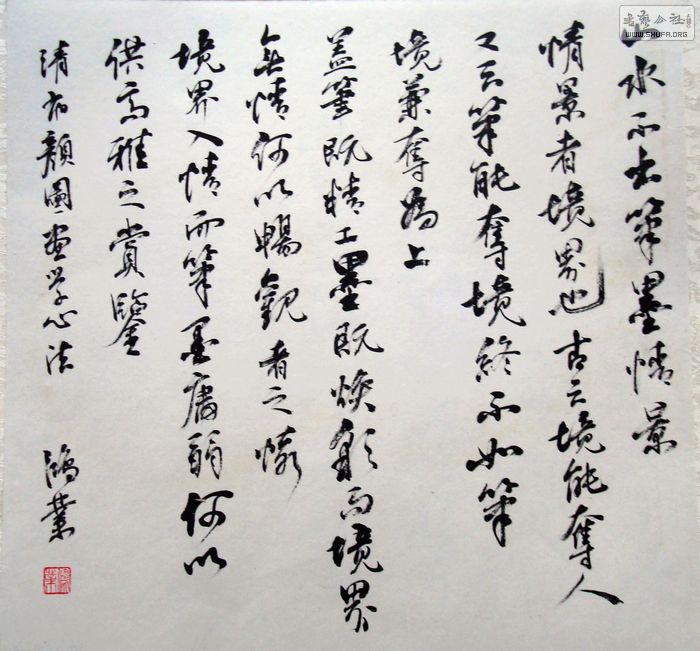 書藝公社
WWW.SHUFA.ORG
山水不出筆墨情景
情景者境界也古云境能奪人
又云筆能奪境終不如筆
境兼奪為上
盖筆既精工墨既焕彩而境界
無情何以暢觀者之懷
境界入情而筆墨庸弱何以
供高雅之賞鑒
清布顏圖畫学心法 鴻業